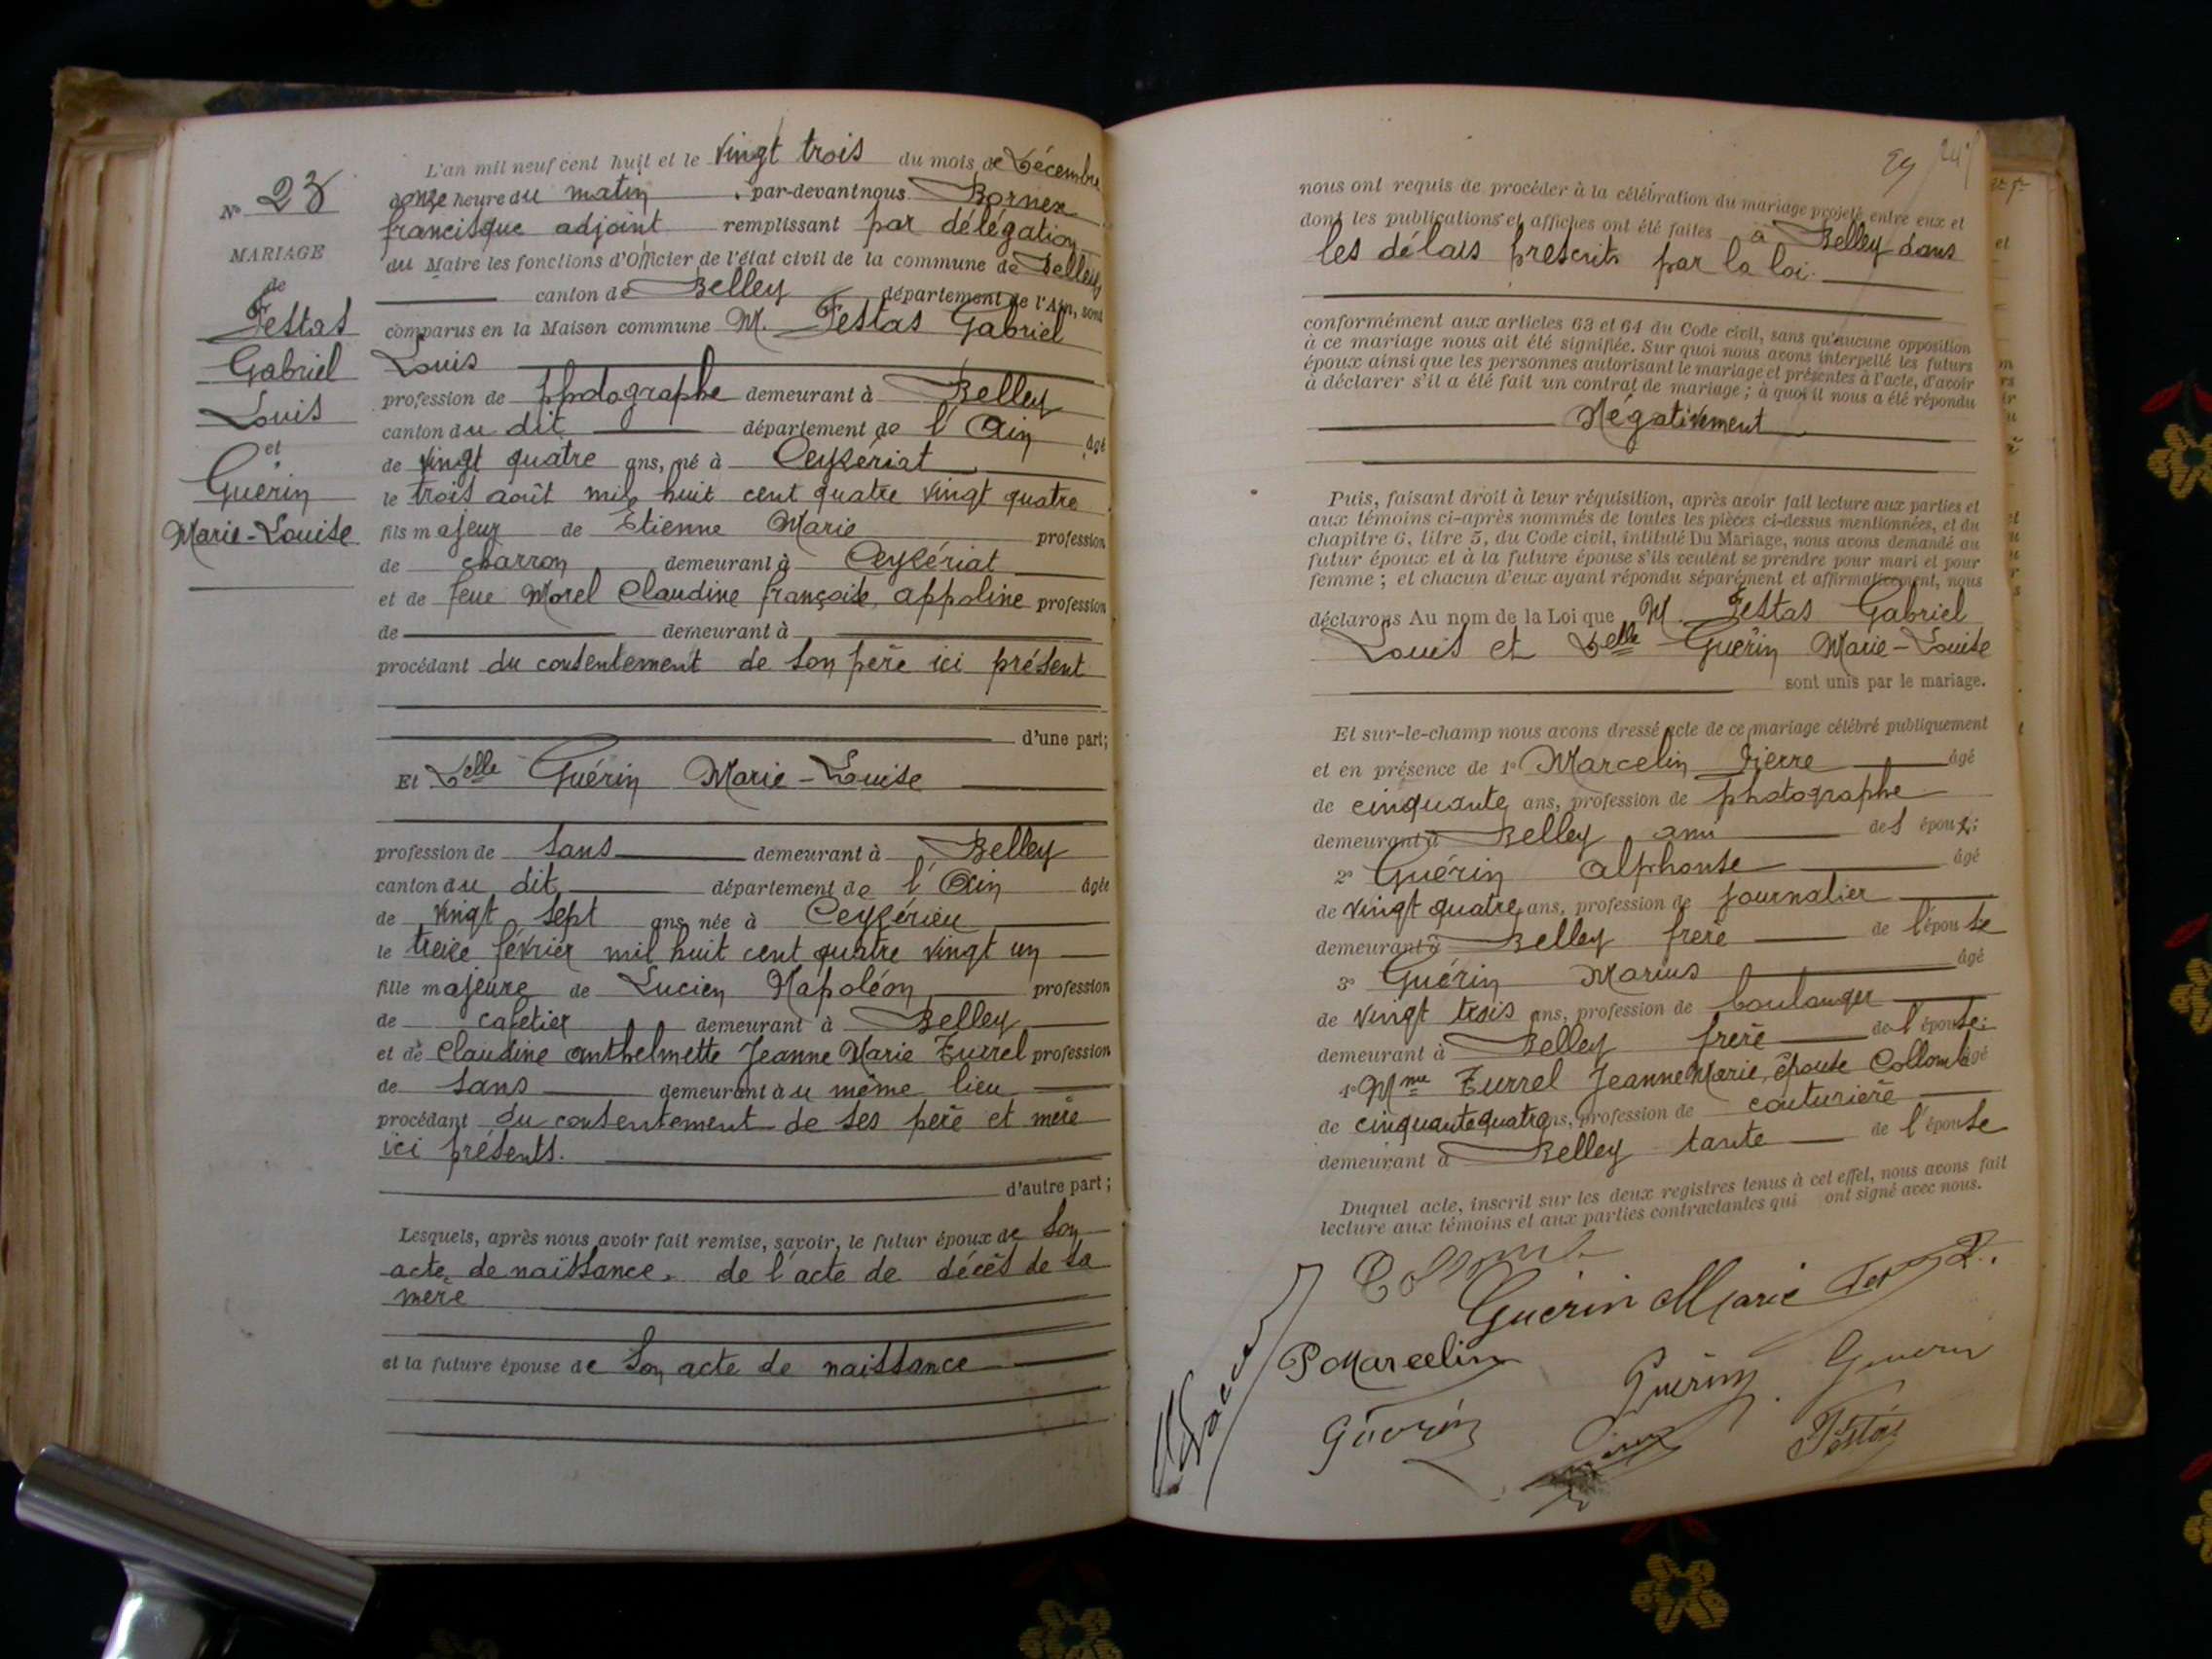 N° 28
MARIAGE
de
Festas
Gabriel
Louis
et
Guérin
Marie-Louise
L'an mil neuf cent huit et le vingt trois du mois de Décembre
onze heure du matin par-devant nous Bornex
francisque adjoint remplissant par délégation
du Maire les fonctions d'Officier de l'état civil de la commune de Belley
canton de Belley département de l'Ain, sont
comparus en la Maison commune M. Festas Gabriel
Louis
profession de photographe demeurant à Belley
canton du dit département de l'Ain âgé
de vingt quatre ans, né à Ceyzériat
le trois août mil huit cent quatre vingt quatre
fils majeur de Etienne Marie profession
de charron demeurant à Ceyzériat
et de feue Morel Claudine françoise, appoline profession
de demeurant à
procédant du consentement de son père ici présent
d'une part;
Et Delle Guérin Marie-Louise
profession de sans demeurant à Belley
canton du dit département de l'Ain âgée
de vingt sept ans, née à Ceyzérieu
le treize février mil huit cent quatre vingt un
fille majeure de Lucien Napoléon profession
de cafetier demeurant à Belley
et de Claudine anthelmette Jeanne Marie Turrel profession
de sans demeurant au même lieu
procédant du consentement de ses père et mère
ici présents.
d'autre part;
Lesquels, après nous avoir fait remise, savoir, le futur époux de son
acte de naissance, de l'acte de décès de sa
mère
et la future épouse de son acte de naissance
nous ont requis de procéder à la célébration du mariage projeté entre eux et
dont les publications et affiches ont été faites à Belley dans
les délais prescrits par la loi.
conformément aux articles 63 et 64 du Code civil, sans qu'aucune opposition
à ce mariage nous ait été signifiée. Sur quoi nous avons interpellé les futurs
époux ainsi que les personnes autorisant le mariage et présentes à l'acte, d'avoir
à déclarer s'il a été fait un contrat de mariage; à quoi il nous a été répondu
Négativement
Puis, faisant droit à leur réquisition, après avoir fait lecture aux parties et
aux témoins ci-après nommés de toutes les pièces ci-dessus mentionnées, et du
chapitre 6, titre 5, du Code civil, intitulé Du Mariage, nous avons demandé au
futur époux et à la future épouse s'ils veulent se prendre pour mari et pour
femme; et chacun d'eux ayant répondu séparément et affirmativement, nous
déclarons Au nom de la Loi que M. Festas Gabriel
Louis et Delle Guérin Marie-Louise
sont unis par le mariage.
Et sur-le-champ nous avons dressé acte de ce mariage célébré publiquement
et en présence de 1° Marcelin Pierre âgé
de cinquante ans, profession de photographe
demeurant à Belley ami des époux;
2° Guérin alphonse âgé
de vingt quatre ans, profession de journalier
demeurant à Belley frère de l'épouse
3° Guérin Marius âgé
de vingt trois ans, profession de boulanger
demeurant à Belley frère de l'épouse;
4° Mme Turrel Jeanne Marie, épouse Collomb âgé
de cinquante quatre ans, profession de couturière
demeurant à Belley tante de l'épouse
Duquel acte, inscrit sur les deux registres tenus à cet effet, nous avons fait
lecture aux témoins et aux parties contractantes qui ont signé avec nous.
Guérin Marie
P Marcelin
Guérin Guerin
Guérin Festas